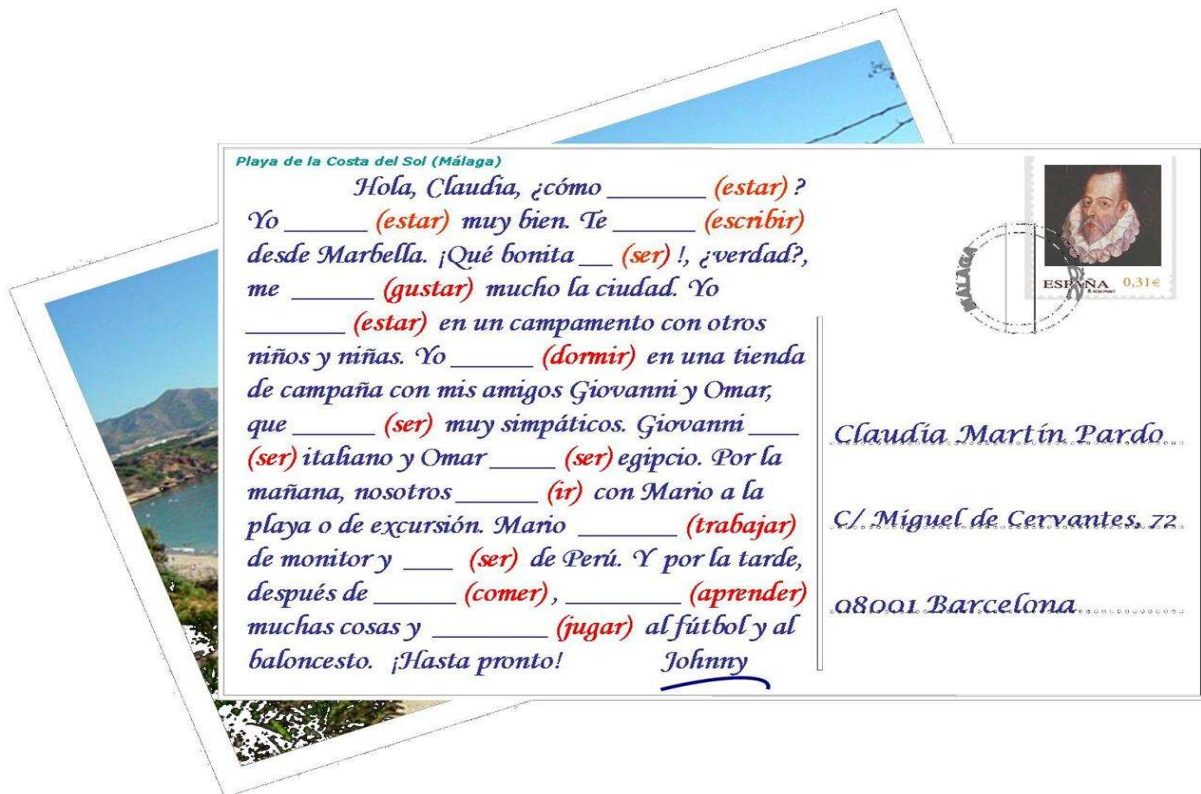 Playa de la Costa del Sol (Málaga)
Hola, Claudia, ¿cómo ________ (estar) ?
Yo _______ (estar) muy bien. Te _______ (escribir)
desde Marbella. ¡Qué bonita ___ (ser) !, ¿verdad?,
me _______ (gustar) mucho la ciudad. Yo
________ (estar) en un campamento con otros
niños y niñas. Yo _______ (dormir) en una tienda
de campaña con mis amigos Giovanni y Omar,
que _______ (ser) muy simpáticos. Giovanni ____
(ser) italiano y Omar _____ (ser) egipcio. Por la
mañana, nosotros _______ (ir) con Mario a la
playa o de excursión. Mario ________ (trabajar)
de monitor y ____ (ser) de Perú. Y por la tarde,
después de _______ (comer) , _________ (aprender)
muchas cosas y _________ (jugar) al fútbol y al
baloncesto. ¡Hasta pronto! Johnny
MÁLAGA
ESPAÑA 0,31€
Claudia Martín Pardo
C/ Miguel de Cervantes, 72
08001 Barcelona